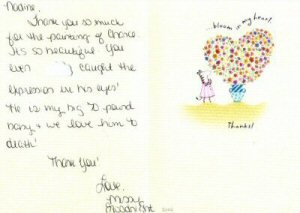 Nadine,
Thank you so much
for the painting of Chance.
It's so beautiful! You
even caught the
expression in his eyes!
He is my big 70 pound
baby + we love him to
death!
Thank you!
Love,
Missy
...bloom in my heart.
Thanks!